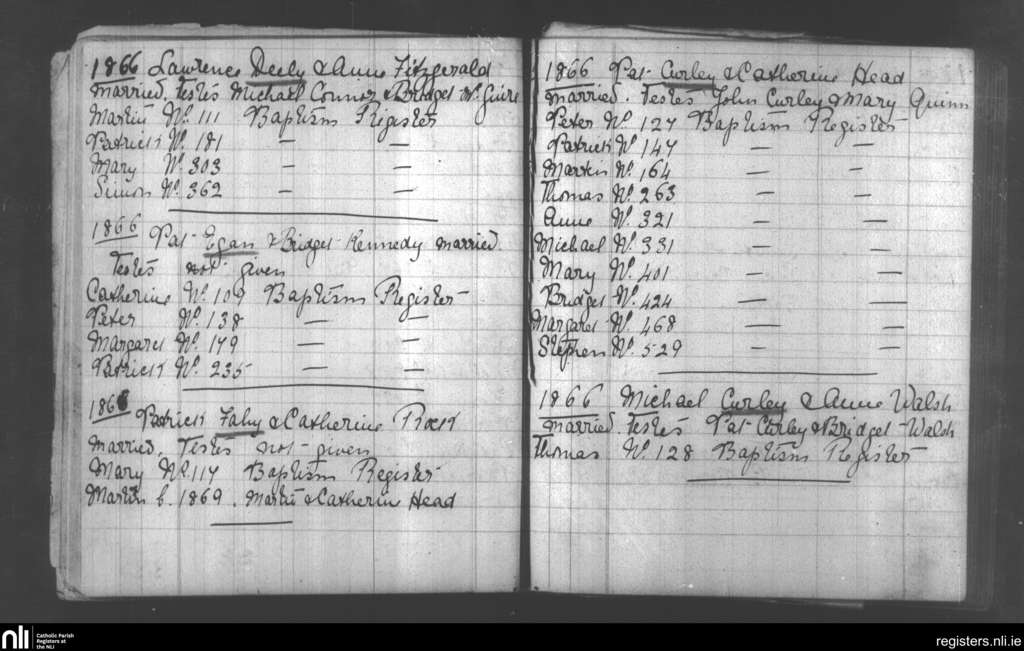 1866 Lawrence Deely & Anne Fitzgerald
married. Testes Michael Connor & Bridget McGuire
Martin No. 111 Baptism Register
Patrick No. 181 — —
Mary No. 303 — —
Simon No. 362 — —
1866 Pat Egan & Bridget Kennedy married.
Testes not given
Catherine No. 109 Baptism Register
Peter No. 138 — —
Margaret No. 179 — —
Patrick No. 235 — —
1866 Patrick Fahy & Catherine
married. Testes not given
Mary No. 117 Baptism Register
Martin b. 1869. Martin & Catherin Head
1866 Pat Curley & Catherine Head
married. Testes John Curley & Mary Quinn
Peter No. 127 Baptism Register
Patrick No. 147 — —
Martin No. 164 — —
Thomas No. 263 — —
Anne No. 321 — —
Michael No. 331 — —
Mary No. 401 — —
Bridget No. 424 — —
Margaret No. 468 — —
Stephen No. 529 — —
1866 Michael Curley & Anne Walsh
married. Testes Pat Curley & Bridget Walsh
Thomas No. 128 Baptism Register
nli Catholic Parish
Registers at
the NLI
registers.nli.ie